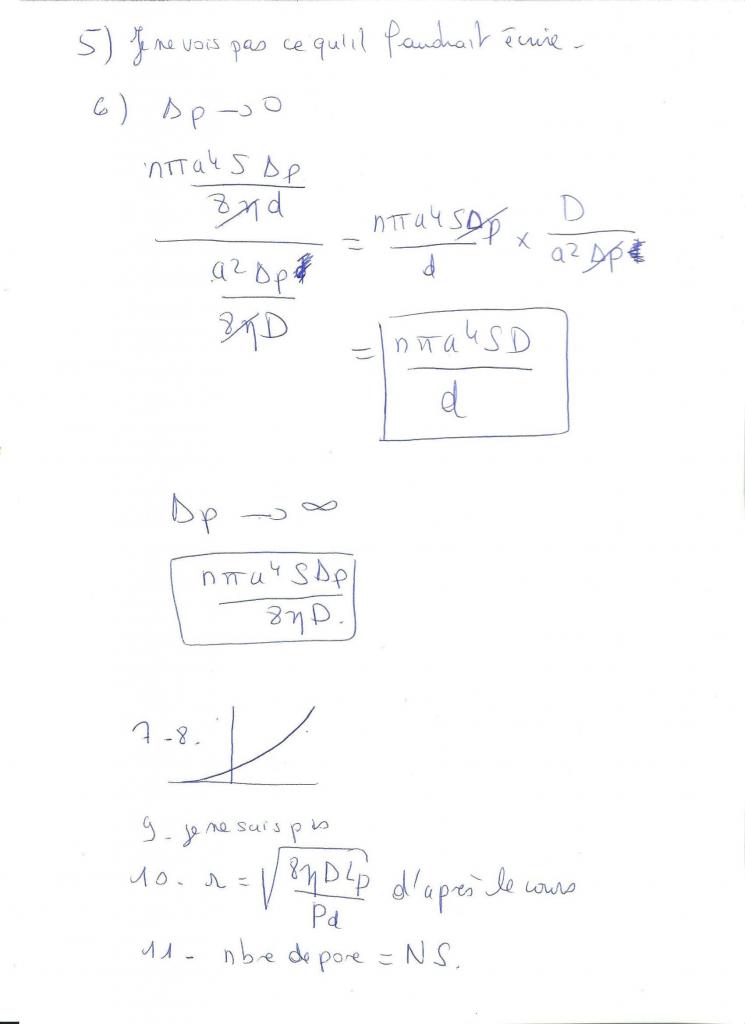 5) Je ne vois pas ce qu'il faudrait écrire -
6) Δp → 0
nπa⁴ S Δp / 8ηd
/ a² Δp / 8ηD
= nπa⁴ SΔp / d × D / a² Δp
= nπa⁴SD / d
Δp → ∞
nπa⁴ SΔp / 8ηD.
7-8.
9- je ne suis pas
10- r = √(8ηDLp / Pd) d'après le cours
11- nbre de pore = NS.